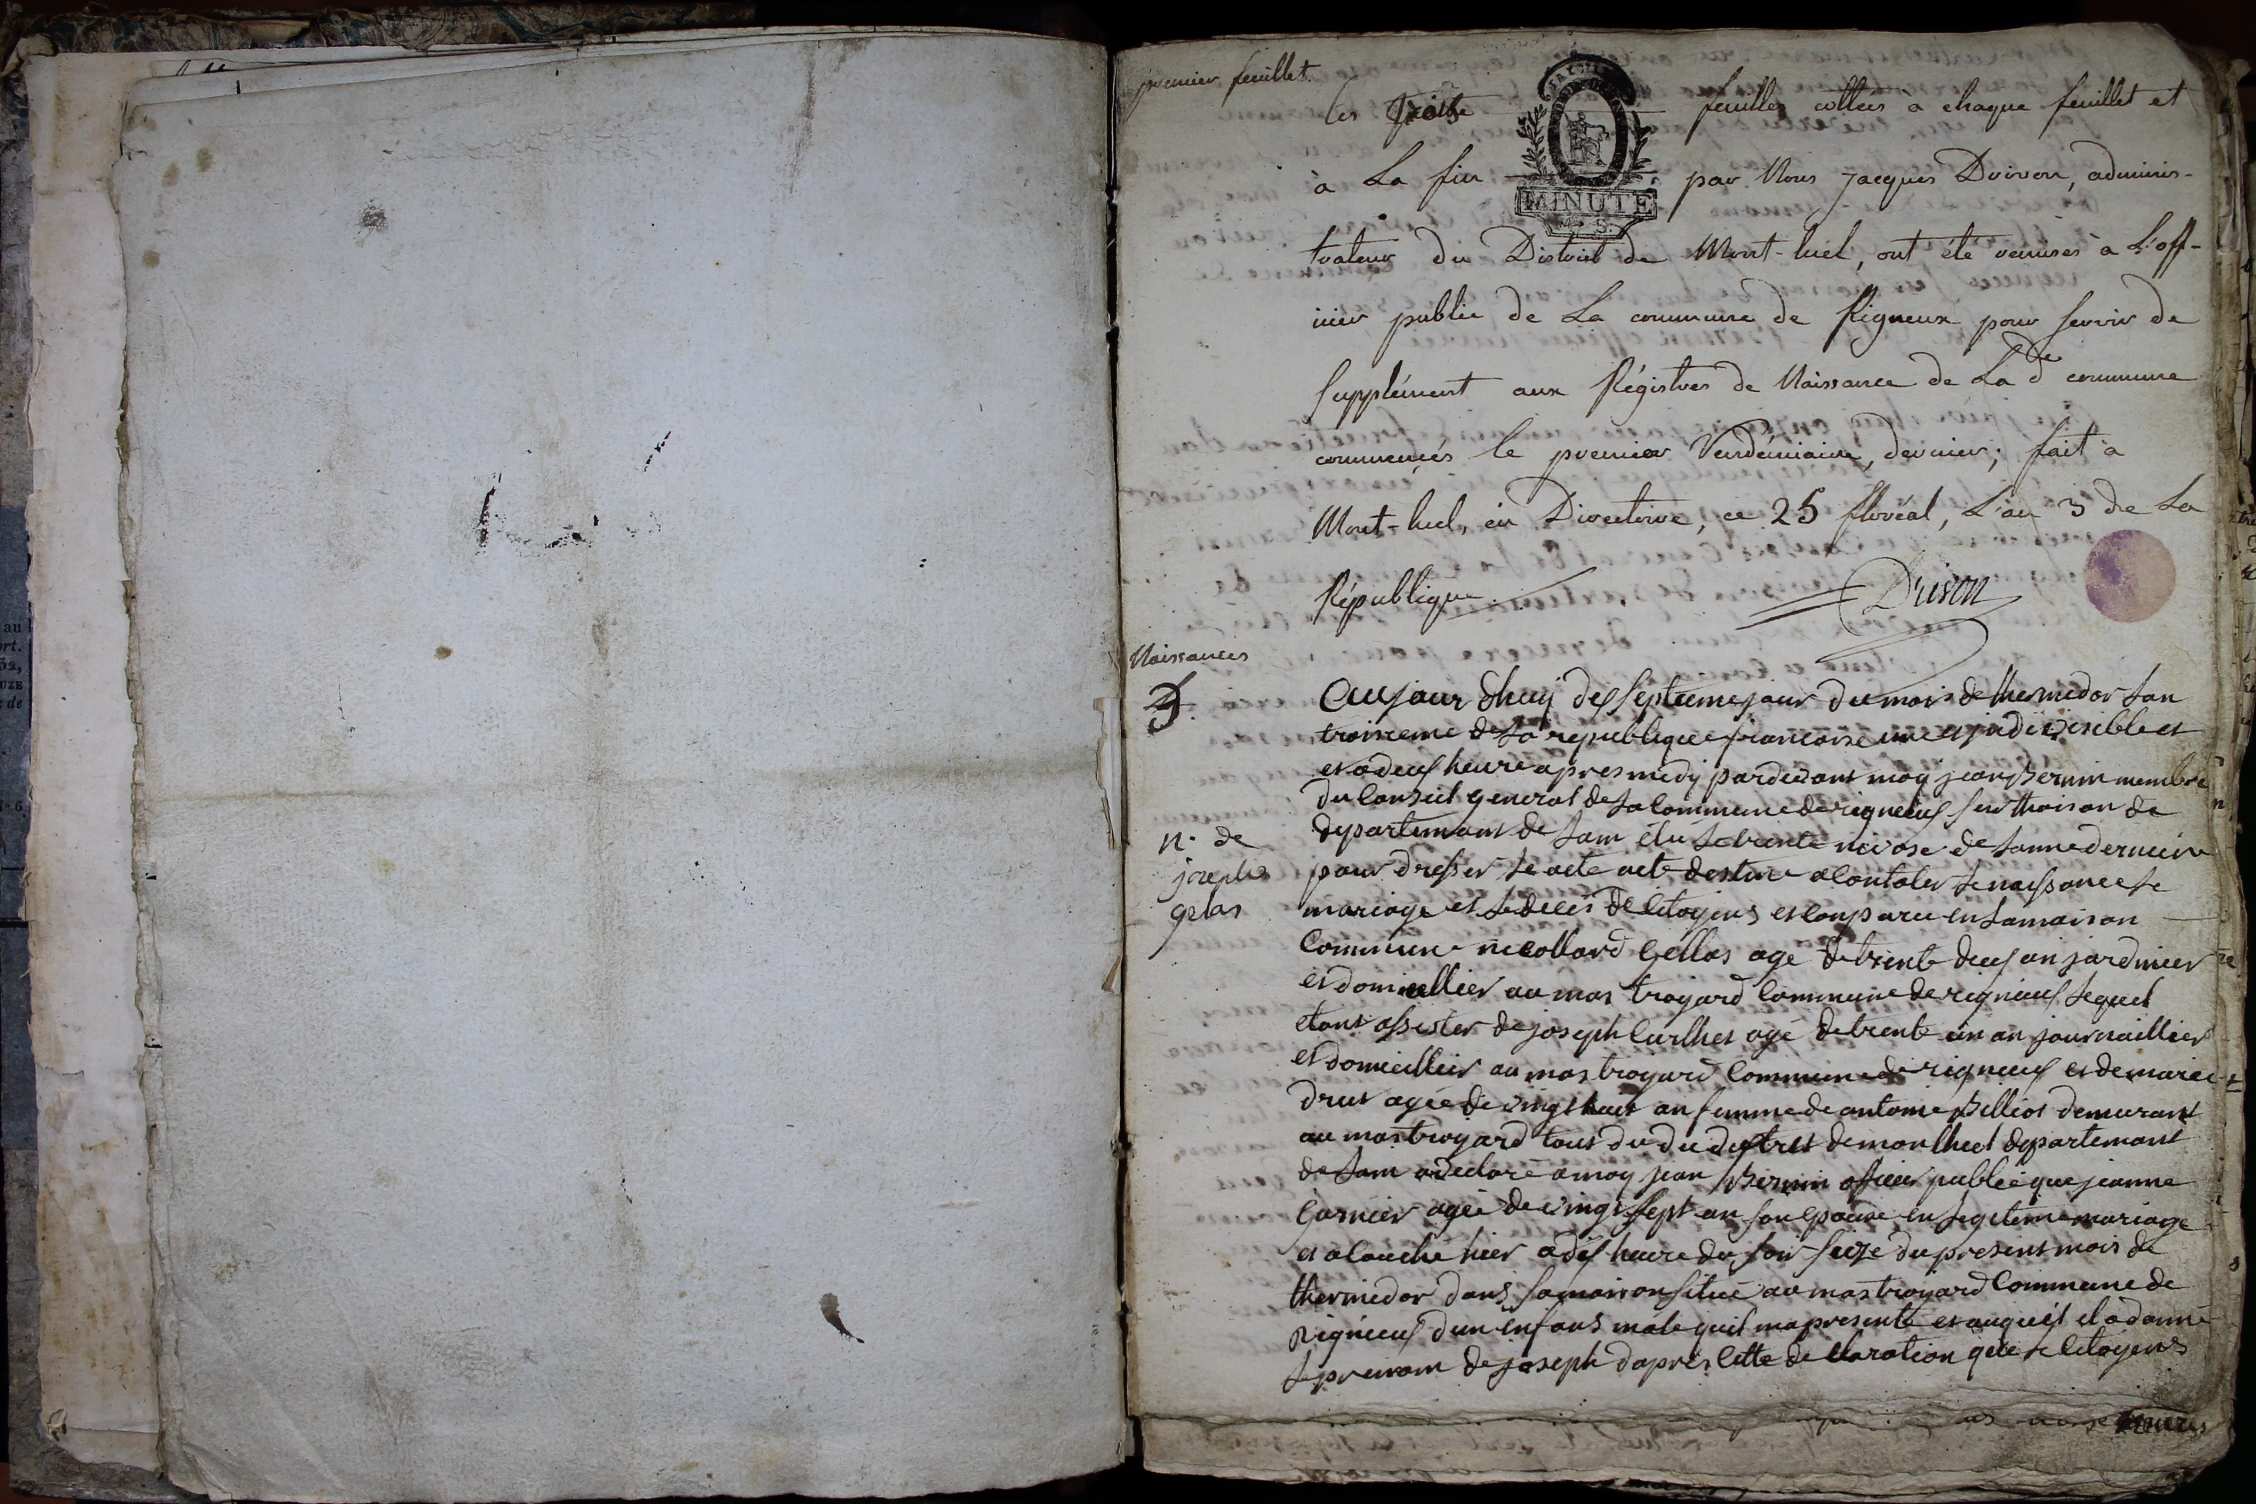 premier feuillet.
les treize feuilles cottées à chaque feuillet et
à La fin par Nous Jacques Druion, adminis-
trateur du District de Mont-luel, ont été remises à L'offi-
cier public de La commune de Rigneux pour servir de
Supplément aux Régistres de Naissance de La de commune
commencés le premier Vendémiaire, dernier; fait à
Mont-luel, en Directoire, ce 25 floréal, L'an 3 de La
République.
MINUTE
Naissances
n. de
joseph
gelas
aujour dhuy dessepteme jour du mois de thermedor lan
troisieme de la republique francoise une et indivisible et
et a deus heure apres medy pardevant moy jean Bernin membre
du Conseil general de la Commune de rigneus sur thoison de
departemant de lain élu le trente nivose de lanne derniere
pour dresser le acte acte destine a Contater le naissance le
mariage et le deces de Citoyens et Conparu en la maison
Commune nicollard Gellas age de trente deus an jardinier
et domicillier au mas troyard Commune de rigneus lequel
etant assister de joseph Curlhet agé de trente un an journaillier
et domicillier au mas troyard Commune de rigneus et de marie
drut agée de vingt huit an femme de antoine Billiot demurant
au mas troyard tous du du destrit de monlhuel departemant
de lain a declaré a moy jean Bernin oficier publie que jeanne
Garnier agée de vingt sept an son epouse en legiteme mariage
et a Couché hier a dis heure du soir seize du present mois de
thermedor dans sa maison situé au mas troyard Commune de
Rigneus dun enfans male quil ma presenté et auquel il a donné
le prenom de joseph dapres Cette declaration que le Citoyens